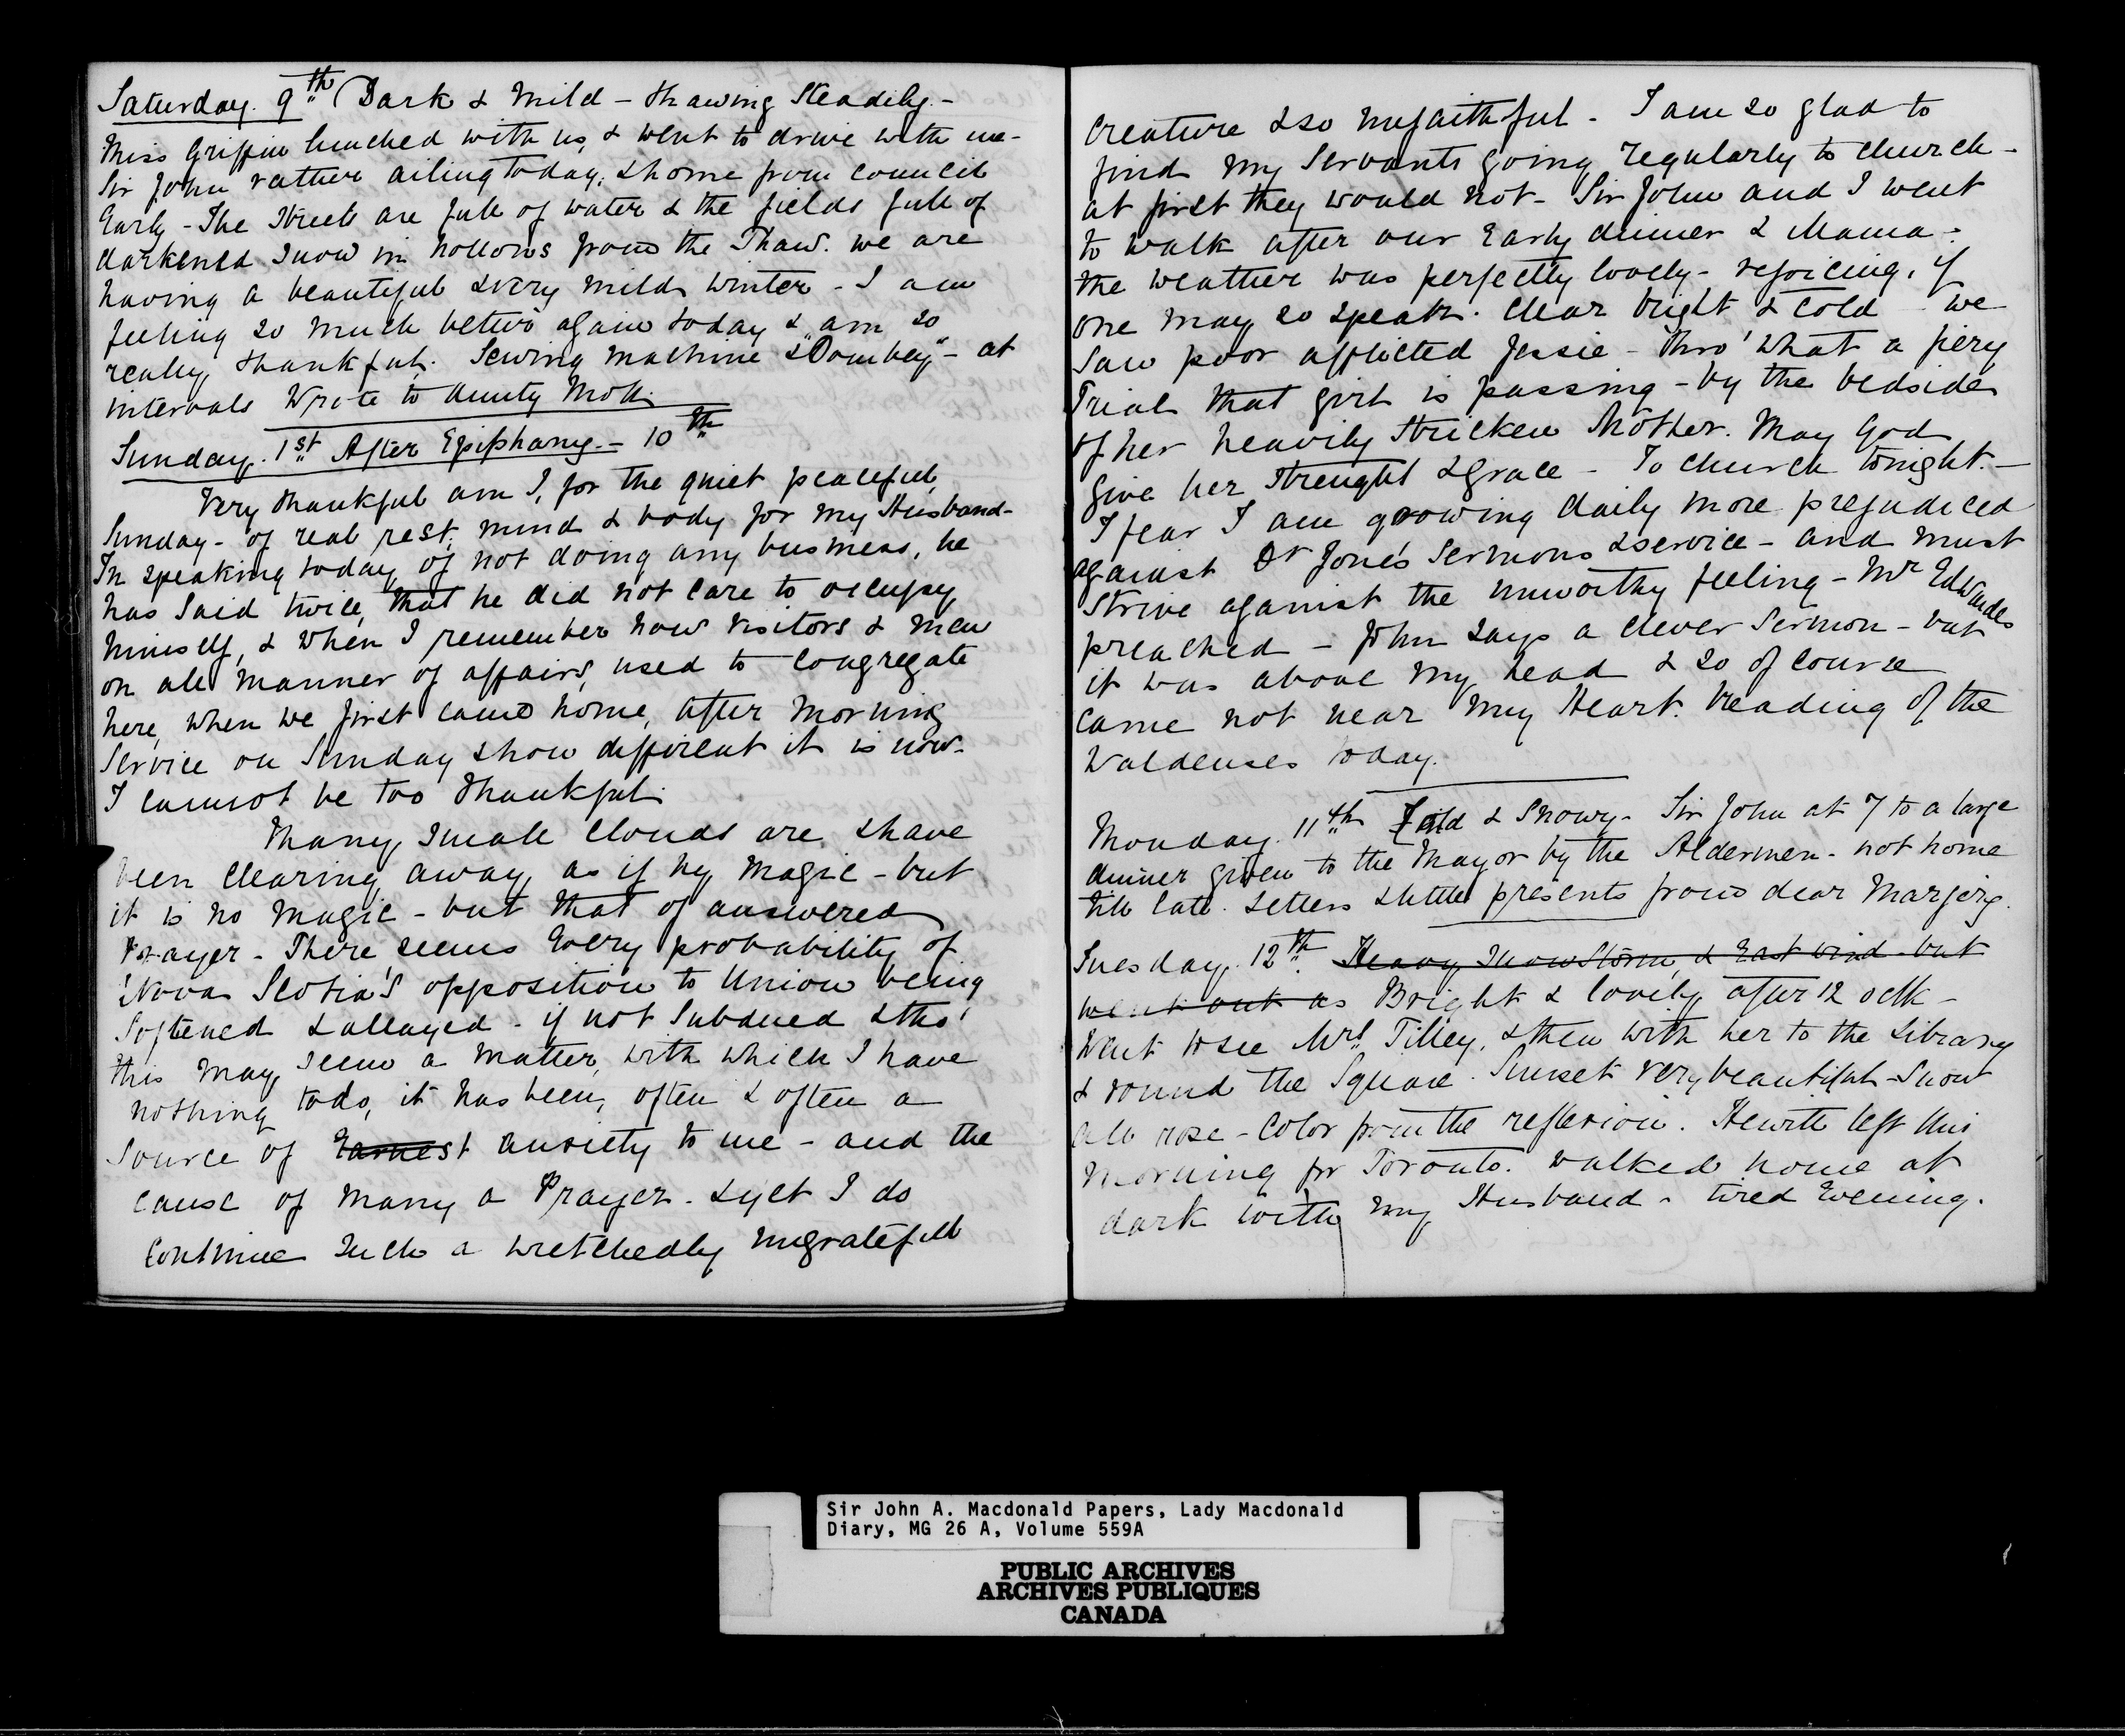 Saturday. 9th Dark & Mild - thawing Steadily. -
Miss Griffin lunched with us, & went to drive with me -
Sir John rather ailing today, & home from council
Early - The Streets are full of water & the fields full of
darkened Snow in hollows from the Thaw. we are
having a beautiful & very mild winter - I am
feeling so much better again today & am so
really thankful. Sewing machine & "Dombey" - at
intervals Wrote to Aunty Moll.
Sunday. 1st After Epiphany. - 10th
Very thankful am I, for the quiet peaceful,
Sunday - of real rest, mind & body for my Husband -
In speaking today of not doing any business, he
has said twice, that he did not care to occupy
himself, & when I remember how visitors & men
on all manner of affairs, used to congregate
here, when we first came home, after Morning
Service on Sunday & how different it is now -
I cannot be too thankful.
Many small clouds are & have
been clearing away as if by magic - but
it is no magic - but that of answered
Prayer - There seems Every probability of
Nova Scotia's opposition to Union being
Softened & allayed - if not Subdued & tho'
this may seem a matter, with which I have
nothing to do, it has been, often & often a
Source of Earnest anxiety to me - and the
cause of many a Prayer. & yet I do
continue Such a wretchedly ungrateful
creature & so unfaithful - I am so glad to
find my Servants going regularly to church -
at first they would not - Sir John and I went
to walk after our Early dinner & Mama -
the weather was perfectly lovely - rejoicing, if
one may so speak. Clear bright & cold - we
Saw poor afflicted Jessie - Thro' what a fiery
Trial that girl is passing - by the bedside
of her heavily Stricken Mother. May God
give her Strenght & grace - To church tonight. -
I fear I am growing daily more prejudiced
against Dr Jone's Sermons & service - and must
Strive against the unworthy feeling - Mr Edwardes
preached - John says a clever Sermon - but
it was above my head & so of course
came not near my Heart. Reading of the
Waldenses today.
Monday. 11th Cold & Snowy - Sir John at 7 to a large
dinner given to the Mayor by the Aldermen - not home
till late. Letters & little presents from dear Marjory.
Tuesday. 12th. Heavy Snow Storm, & East wind - but
went out as Bright & lovely after 12 oclk -
Went to see Mrs Tilley, & then with her to the Library
& round the Square. Sunset very beautiful - Snow
all rose - color from the reflexion. Hewitt left this
Morning for Toronto. Walked home at
dark with my Husband - tired Evening.
Sir John A. Macdonald Papers, Lady Macdonald
Diary, MG 26 A, Volume 559A
PUBLIC ARCHIVES
ARCHIVES PUBLIQUES
CANADA